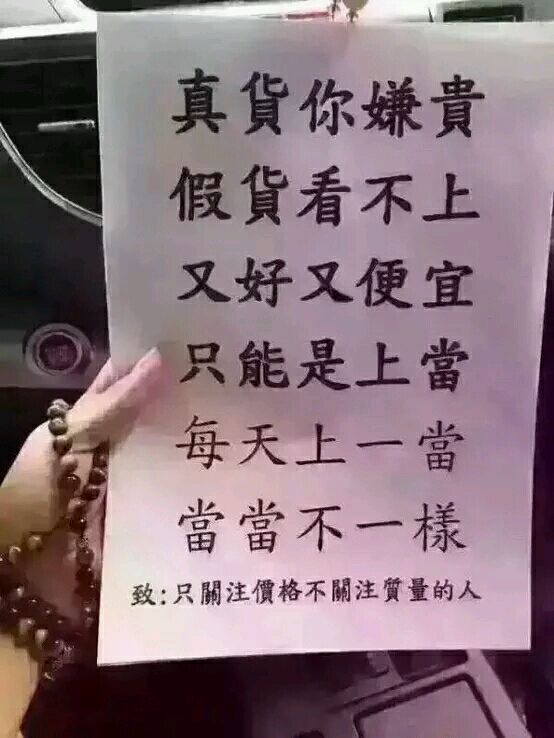 真貨你嫌貴
假貨看不上
又好又便宜
只能是上當
每天上一當
當當不一樣
致:只關注價格不關注質量的人